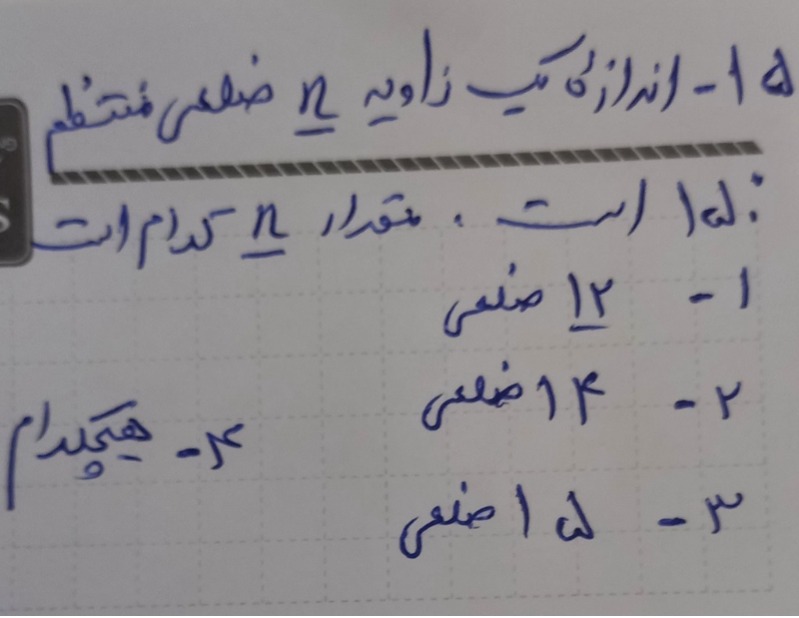 ۱۵- اندازهٔ یک زاویه n ضلعی منتظم
۱۵۰ است . مقدار n کدام است
۱- ۱۲ ضلعی
۲- ۱۴ ضلعی
۴- هیچکدام
۳- ۱۵ ضلعی